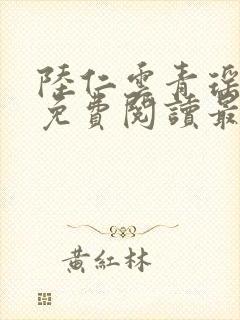 陸仁雲青瑤
免費閱讀最
黃紅林